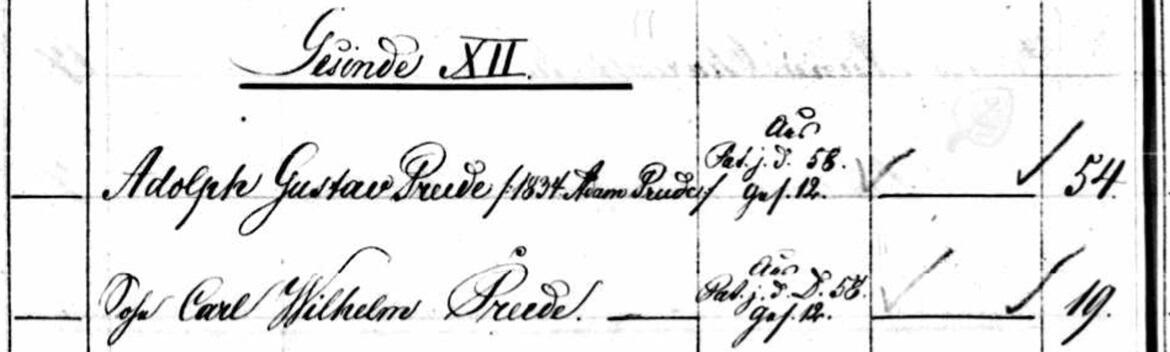 Gesinde XII.
Adolph Gustav Preede /:1834 Adam Preede:/ Aus Pat. j. d. 58. Ges. 12. 54.
Sohn Carl Wilhelm Preede. Aus Pat. j. d. D. 58. Ges. 12. 19.